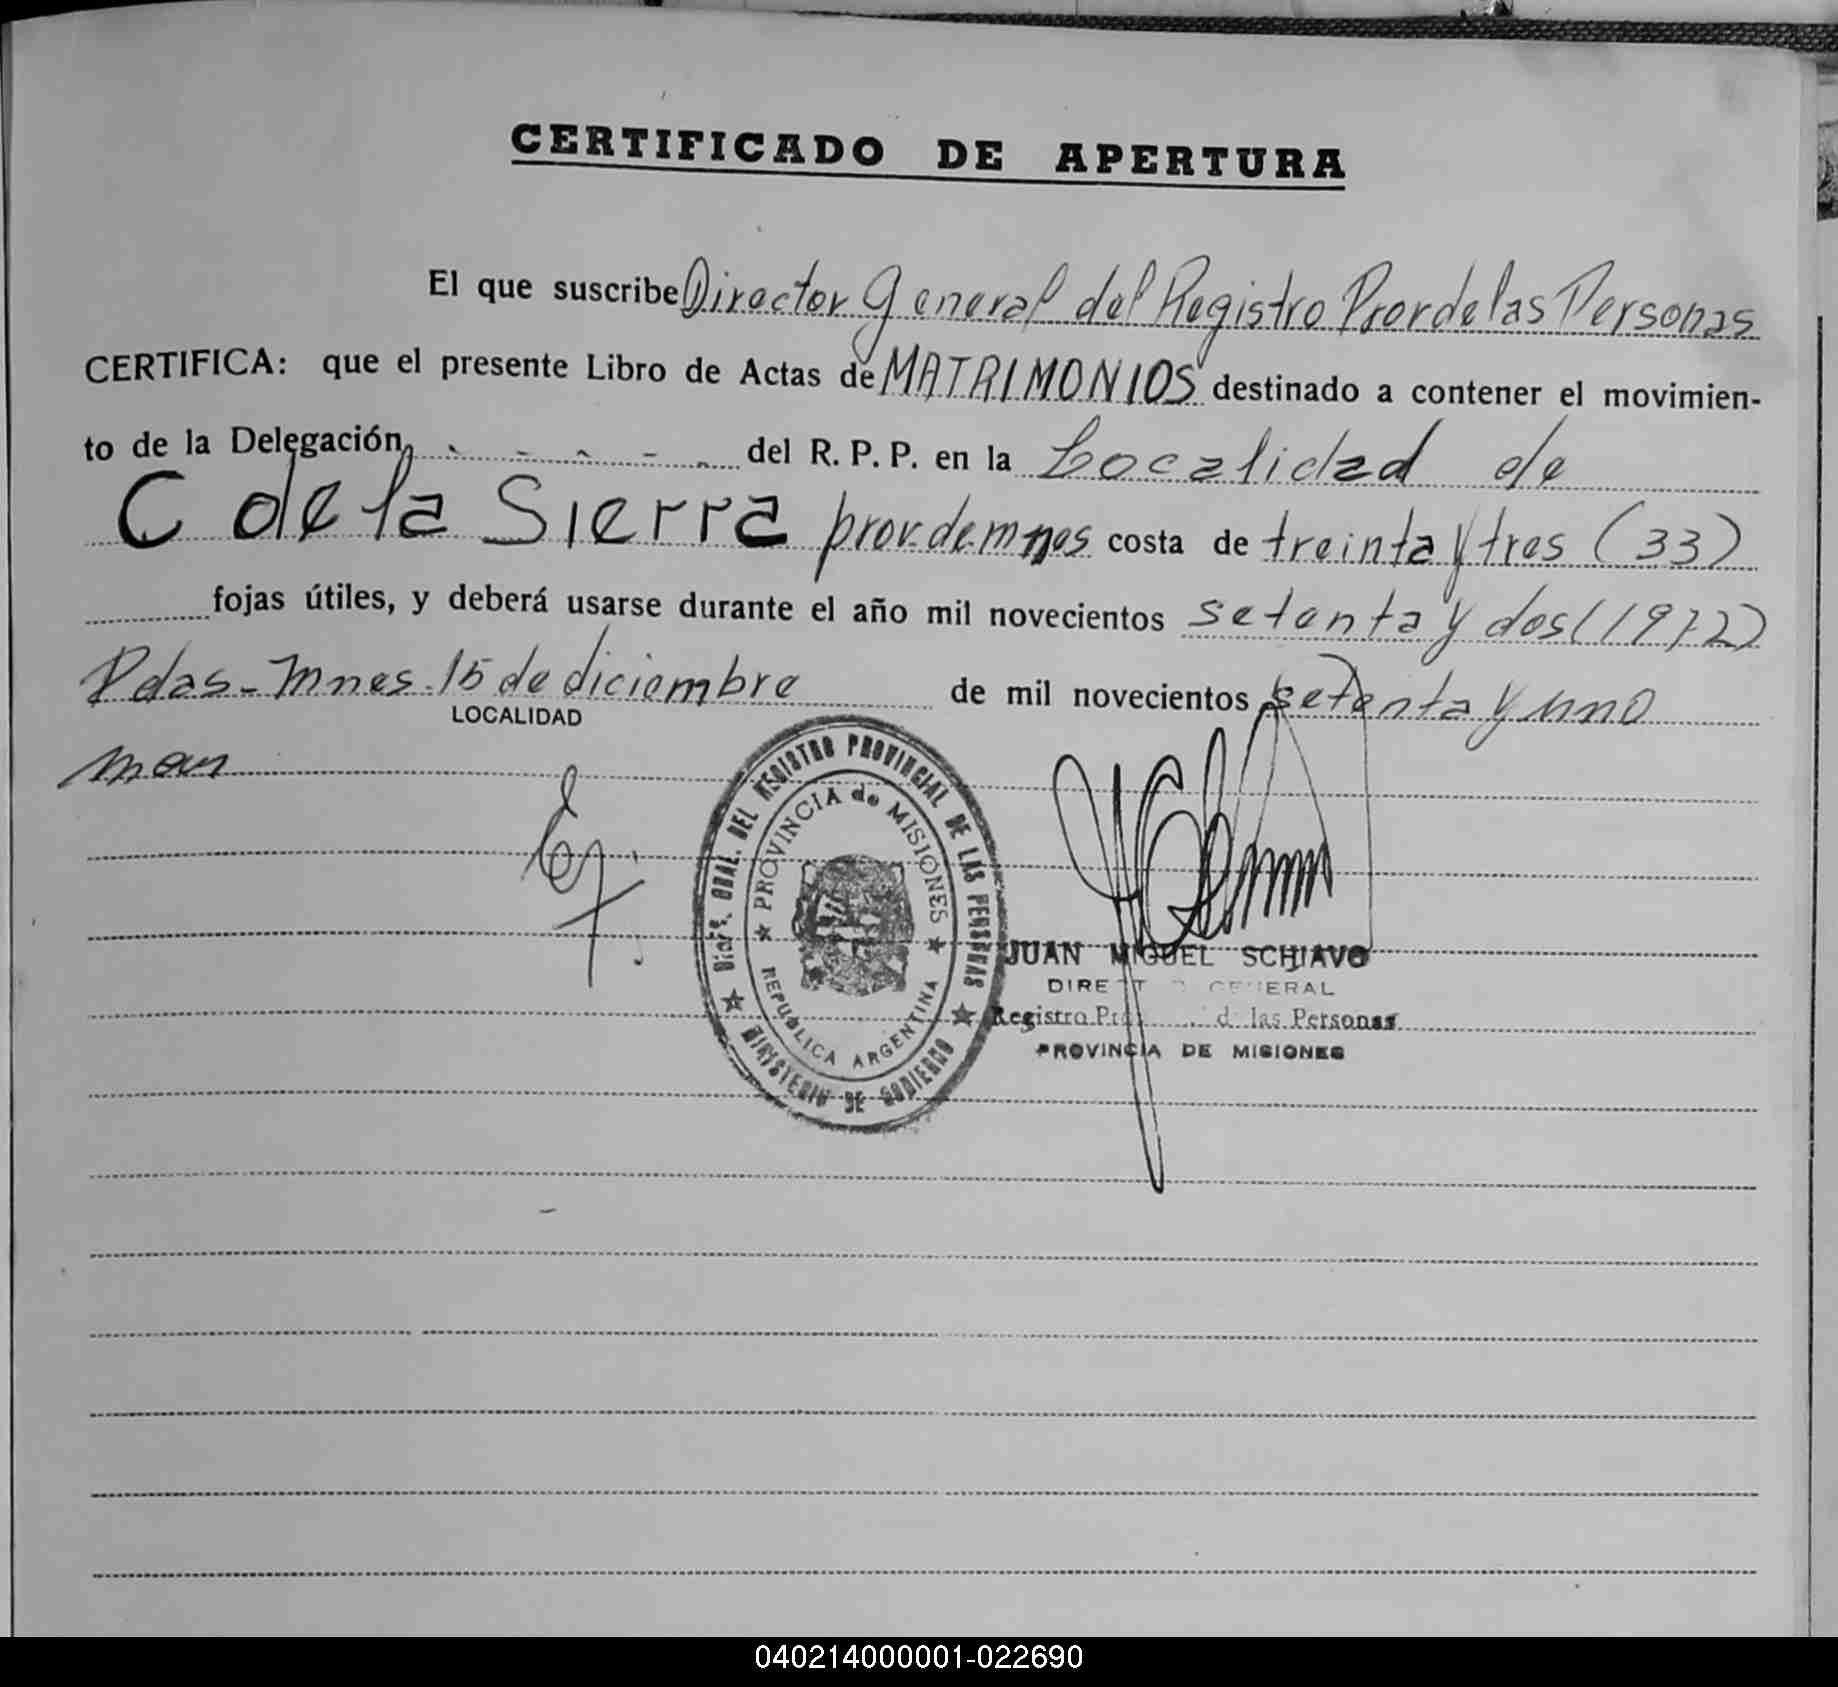 CERTIFICADO DE APERTURA
El que suscribe Director General del Registro Prov de las Personas
CERTIFICA: que el presente Libro de Actas de MATRIMONIOS destinado a contener el movimien-
to de la Delegación, - - - - - del R. P. P. en la Localidad de
C de la Sierra prov. de mnes costa de treinta y tres (33)
fojas útiles, y deberá usarse durante el año mil novecientos setenta y dos (1972)
Pdas - Mnes. 15 de diciembre de mil novecientos setenta y uno
LOCALIDAD
DIREC. GRAL. DEL REGISTRO PROVINCIAL DE LAS PERSONAS
MINISTERIO DE GOBIERNO
PROVINCIA de MISIONES
REPUBLICA ARGENTINA
JUAN MIGUEL SCHIAVO
DIRECTOR GENERAL
Registro Pro de las Personas
PROVINCIA DE MISIONES
040214000001-022690